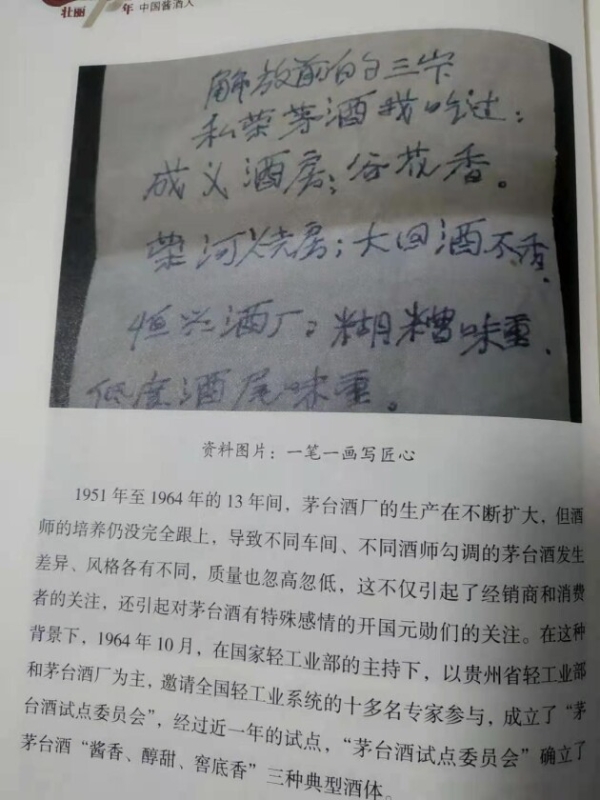 壮丽 年 中国酱酒人
解放前的三家
私营茅酒我吃过：
成义酒房；谷花香。
荣河烧房；大回酒不香.
恒兴酒厂：糊糟味重.
低度酒尾味重。
资料图片：一笔一画写匠心
1951年至1964年的13年间，茅台酒厂的生产在不断扩大，但酒
师的培养仍没完全跟上，导致不同车间、不同酒师勾调的茅台酒发生
差异、风格各有不同，质量也忽高忽低，这不仅引起了经销商和消费
者的关注，还引起对茅台酒有特殊感情的开国元勋们的关注。在这种
背景下，1964年10月，在国家轻工业部的主持下，以贵州省轻工业部
和茅台酒厂为主，邀请全国轻工业系统的十多名专家参与，成立了“茅
台酒试点委员会”，经过近一年的试点，“茅台酒试点委员会”确立了
茅台酒“酱香、醇甜、窖底香”三种典型酒体。